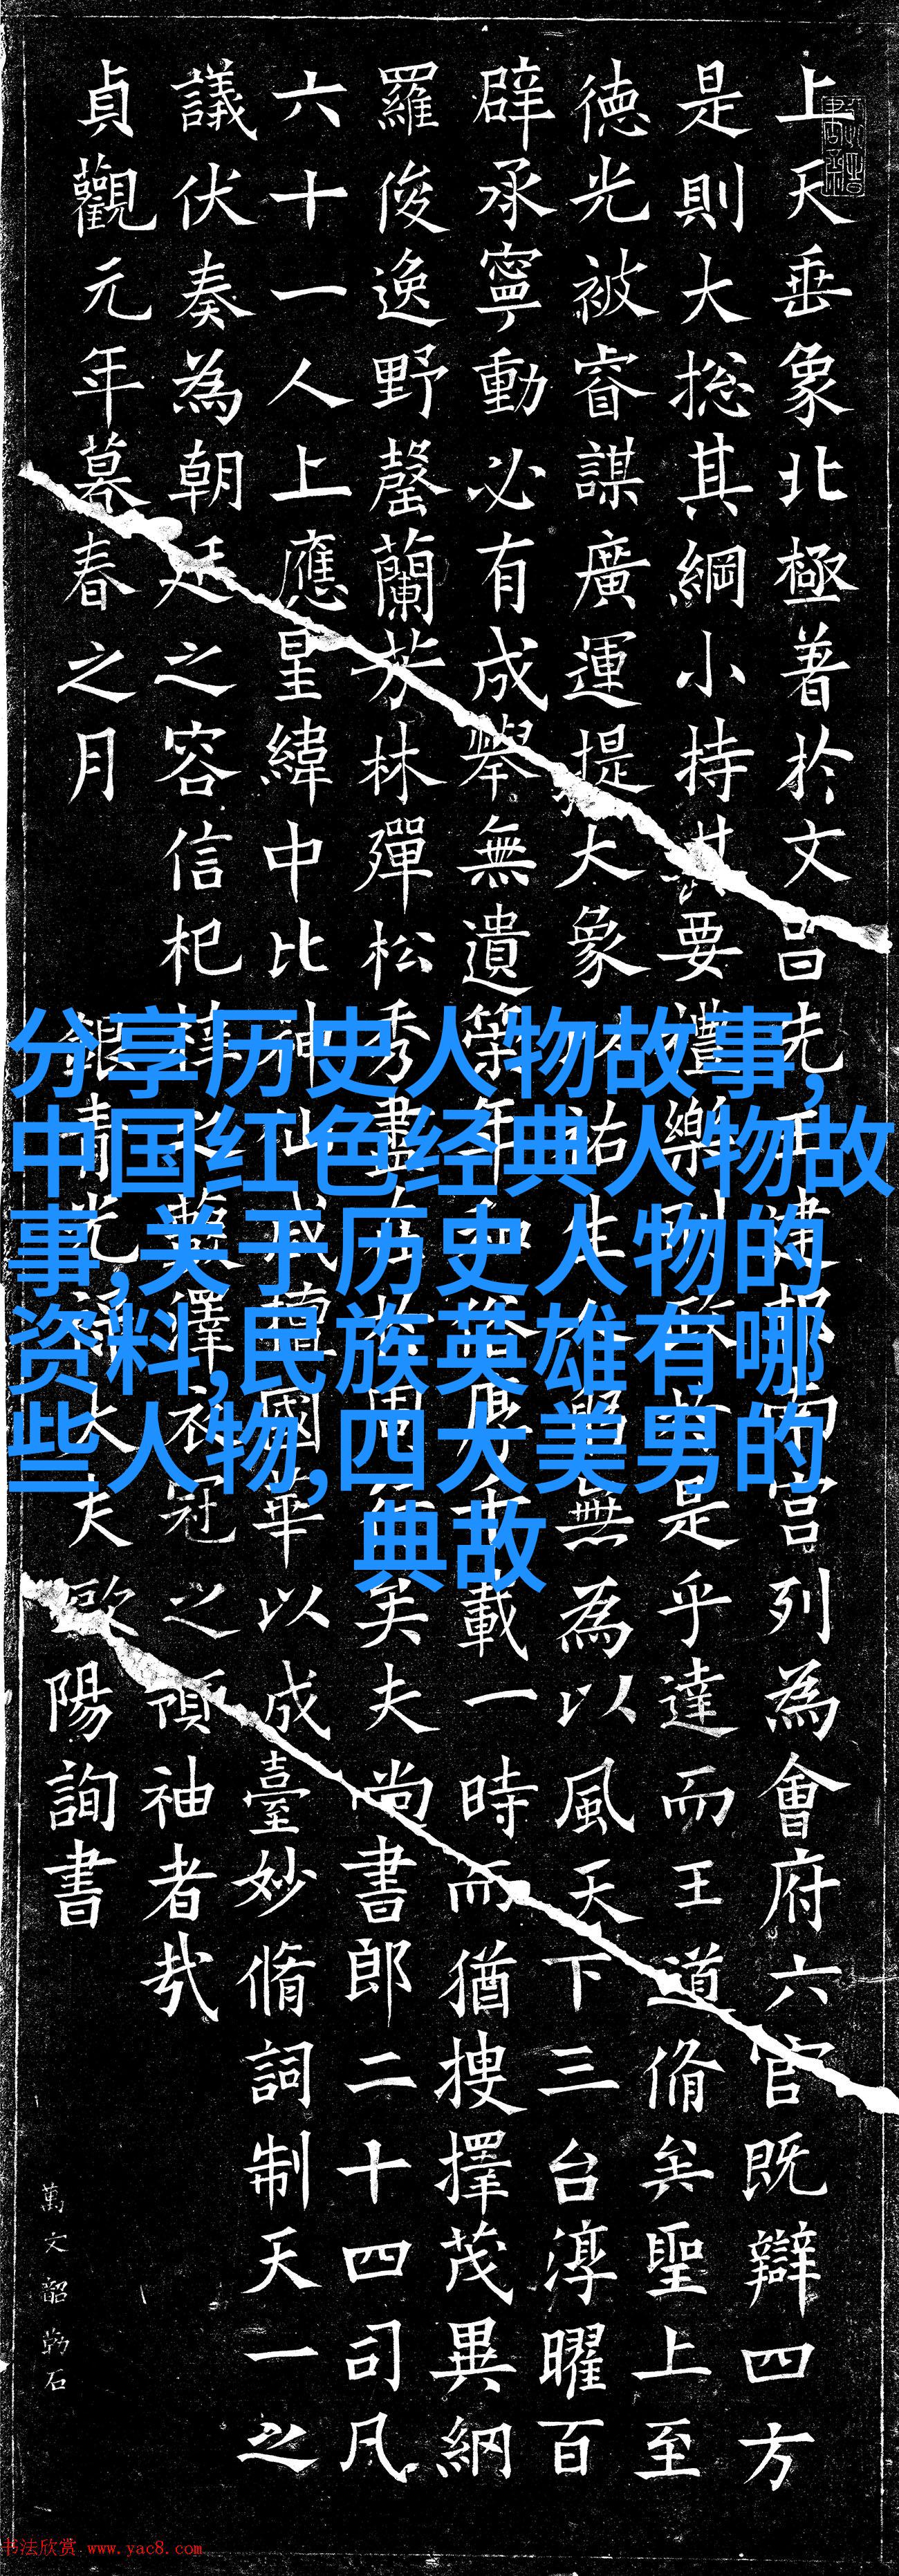 上天垂象北極著於文昌先王建邦南宮列為會府六官既辯四方
是則大捴其綱小持其要禮樂是乎達而王道脩矣聖上至
德光被睿謀廣運提大象祐生無為以風天下三台淳曜百
辟承寧動必有成舉無遺策年和俗厚千載一時而猶搜擇茂異網
羅俊逸野罄蘭芳林殫松秀盡在周行矣夫尚書郎二十四司凡
六十一人上應星緯中比神仙咸擅國華以成臺妙脩詞制天一之
議伏奏為朝廷之容信杞梓之藪澤衣冠之領袖者哉
貞觀元年暮春之月銀青光祿大夫歐陽詢書
萬文韶勒石
分享历史人物故事,
中国红色经典人物故
事,关于历史人物的
资料,民族英雄有哪
些人物,四大美男的
典故
书法欣赏 www.yac8.com